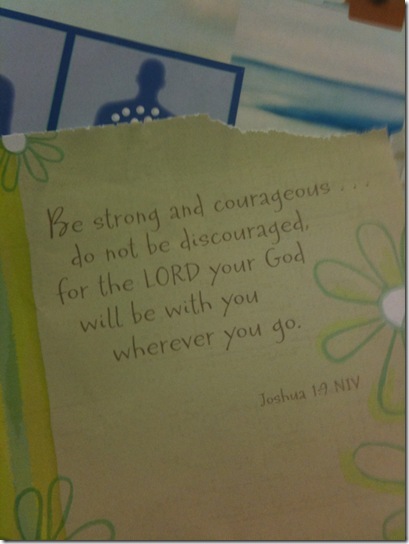 Be strong and courageous . . .
do not be discouraged,
for the LORD your God
will be with you
wherever you go.
Joshua 1:9 NIV